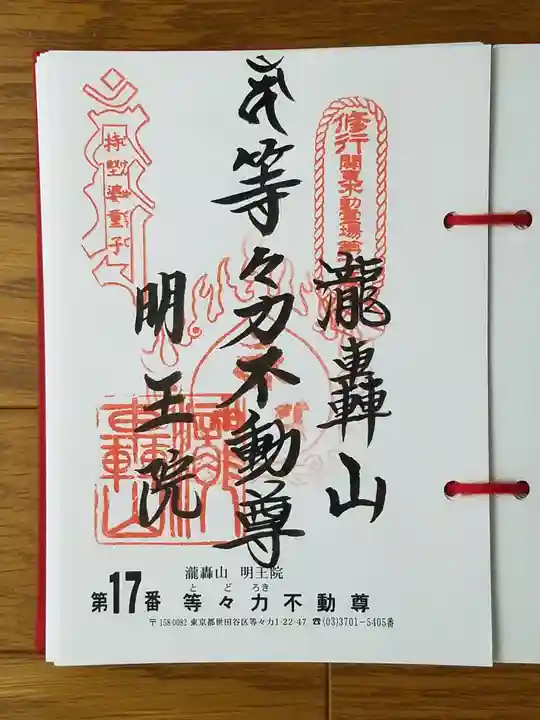 修行
関東不動霊場第
瀧轟山
等々力不動尊
明王院
瀧轟山
瀧轟山 明王院
とどろき
第17番 等々力不動尊
〒158-0082 東京都世田谷区等々力1-22-47 ☎(03)3701-5405番